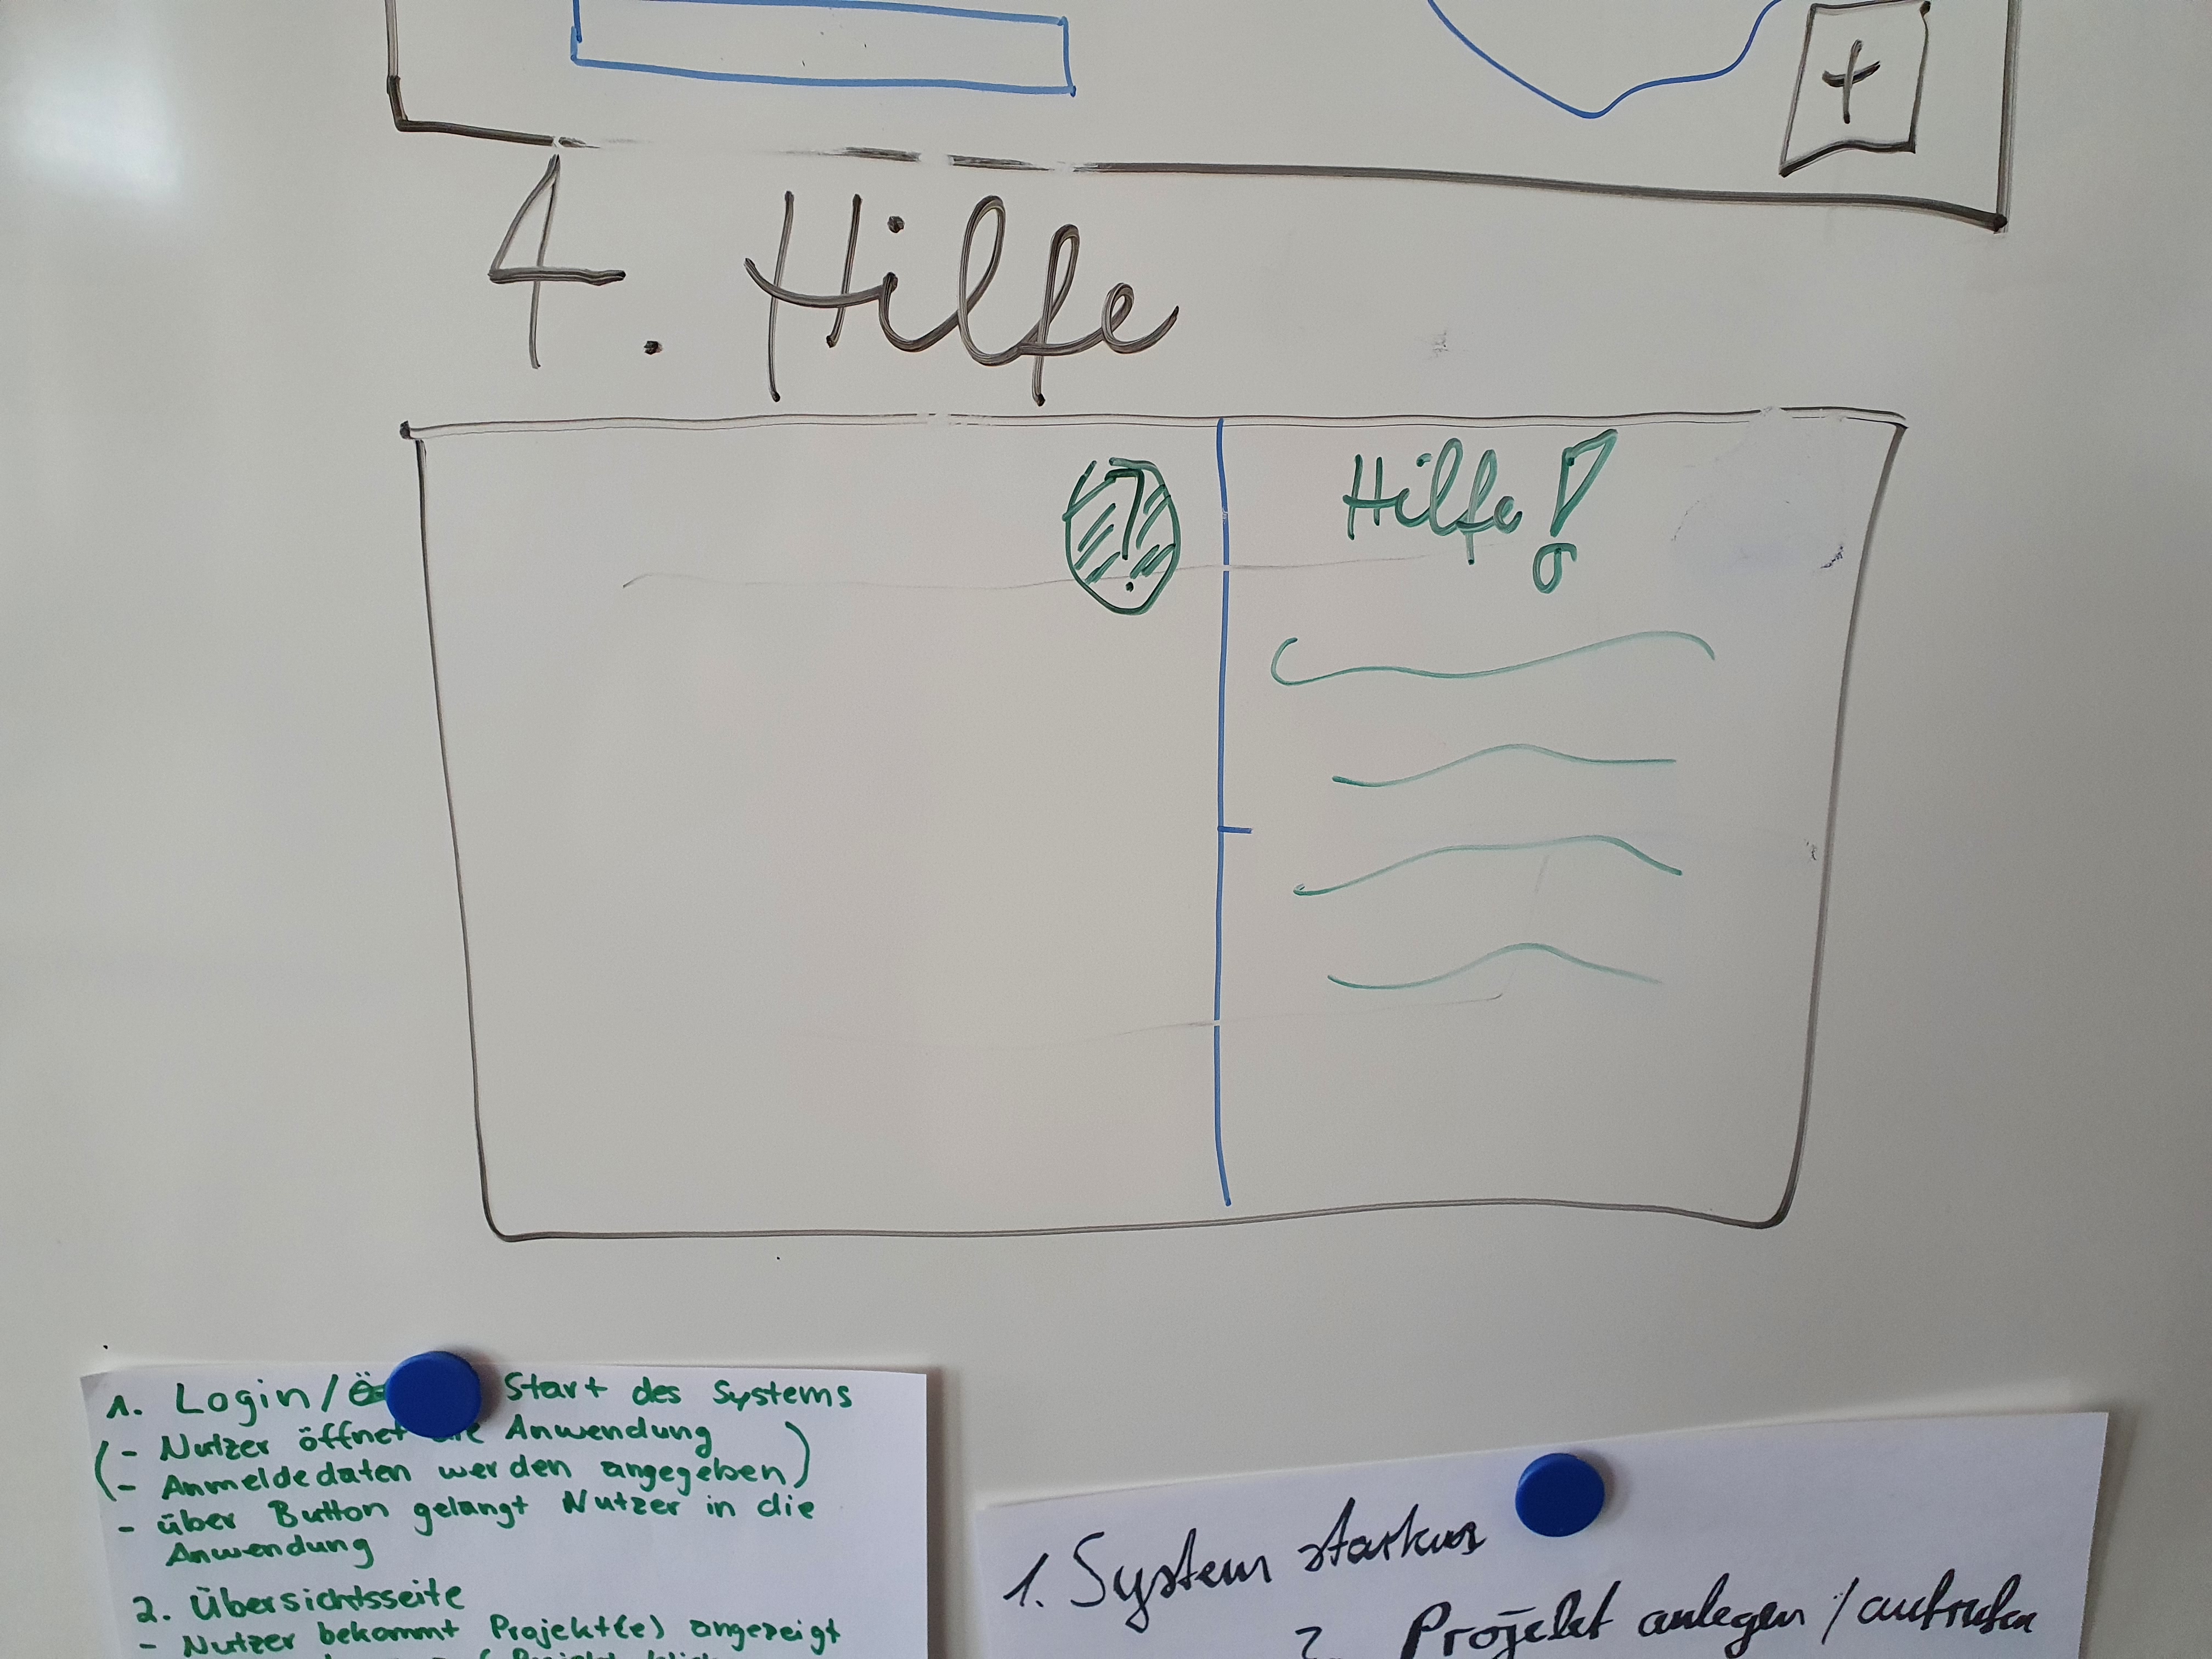 +
4. Hilfe
?
Hilfe!
1. Login/Ö Start des Systems
(- Nutzer öffnet die Anwendung
- Anmeldedaten werden angegeben)
- über Button gelangt Nutzer in die
Anwendung
2. Übersichtsseite
- Nutzer bekommt Projekt(e) angezeigt
1. System starten
2. Projekt anlegen / aufrufen